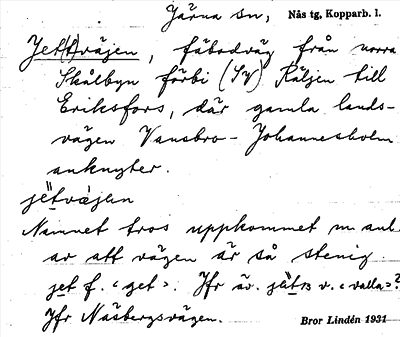 Järna sn, Nås tg, Kopparb. l.
Jet(t)väjen, fäbodväg från norra
Skålbyn förbi (SV) Räljen till
Eriksfors, där gamla lands-
vägen Vansbro - Johannesholm
anknyter.
jetväjen
Namnet tros uppkommet m anl.
av att vägen är så stenig.
jet f. "get". Jfr äv. v. "valla"?
Jfr Näsbergsvägen. Bror Lindén 1931